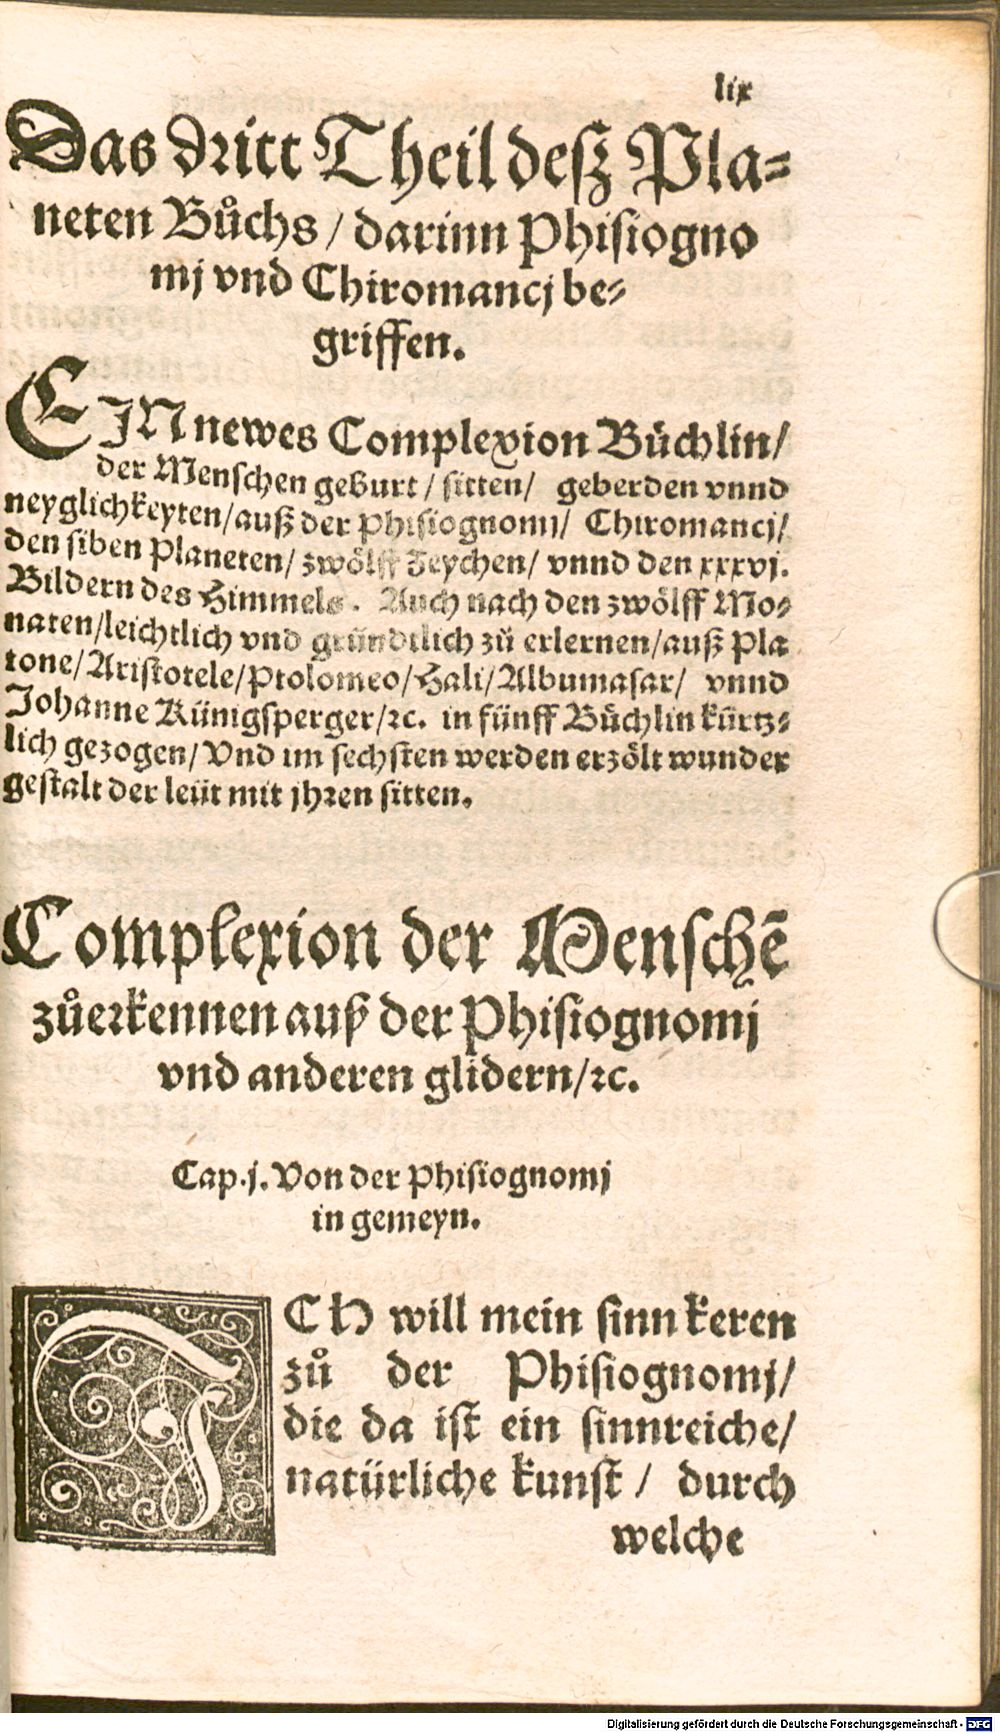 lix
Das dritt Theil deſz Pla⸗
neten Bůchs / darinn Phiſiogno
mj vnd Chiromancj be⸗
griffen.
EIN newes Complexion Büchlin/
der Menſchen geburt / ſitten/ geberden vnnd
neyglichkeyten/auß der Phiſiognomj/ Chiromancj/
den ſiben Planeten/ zwölff Zeychen/ vnnd den xxxvj.
Bildern des Himmels. Auch nach den zwölff Mo⸗
naten/leichtlich vnd gründtlich zů erlernen/auß Pla
tone/Ariſtotele/Ptolomeo/Hali/Albumaſar/ vnnd
Johanne Künigſperger/ꝛc. in fünff Büchlin kürtz⸗
lich gezogen/Vnd im ſechſten werden erzölt wunder
geſtalt der leüt mit jhren ſitten.
Complexion der Menſchē
zůerkennen auß der Phiſiognomj
vnd anderen glidern/ꝛc.
Cap.j. Von der Phiſiognomj
in gemeyn.
ICH will mein ſinn keren
zů der Phiſiognomj/
die da iſt ein ſinnreiche/
natürliche kunſt / durch
welche
Digitalisierung gefördert durch die Deutsche Forschungsgemeinschaft - DFG